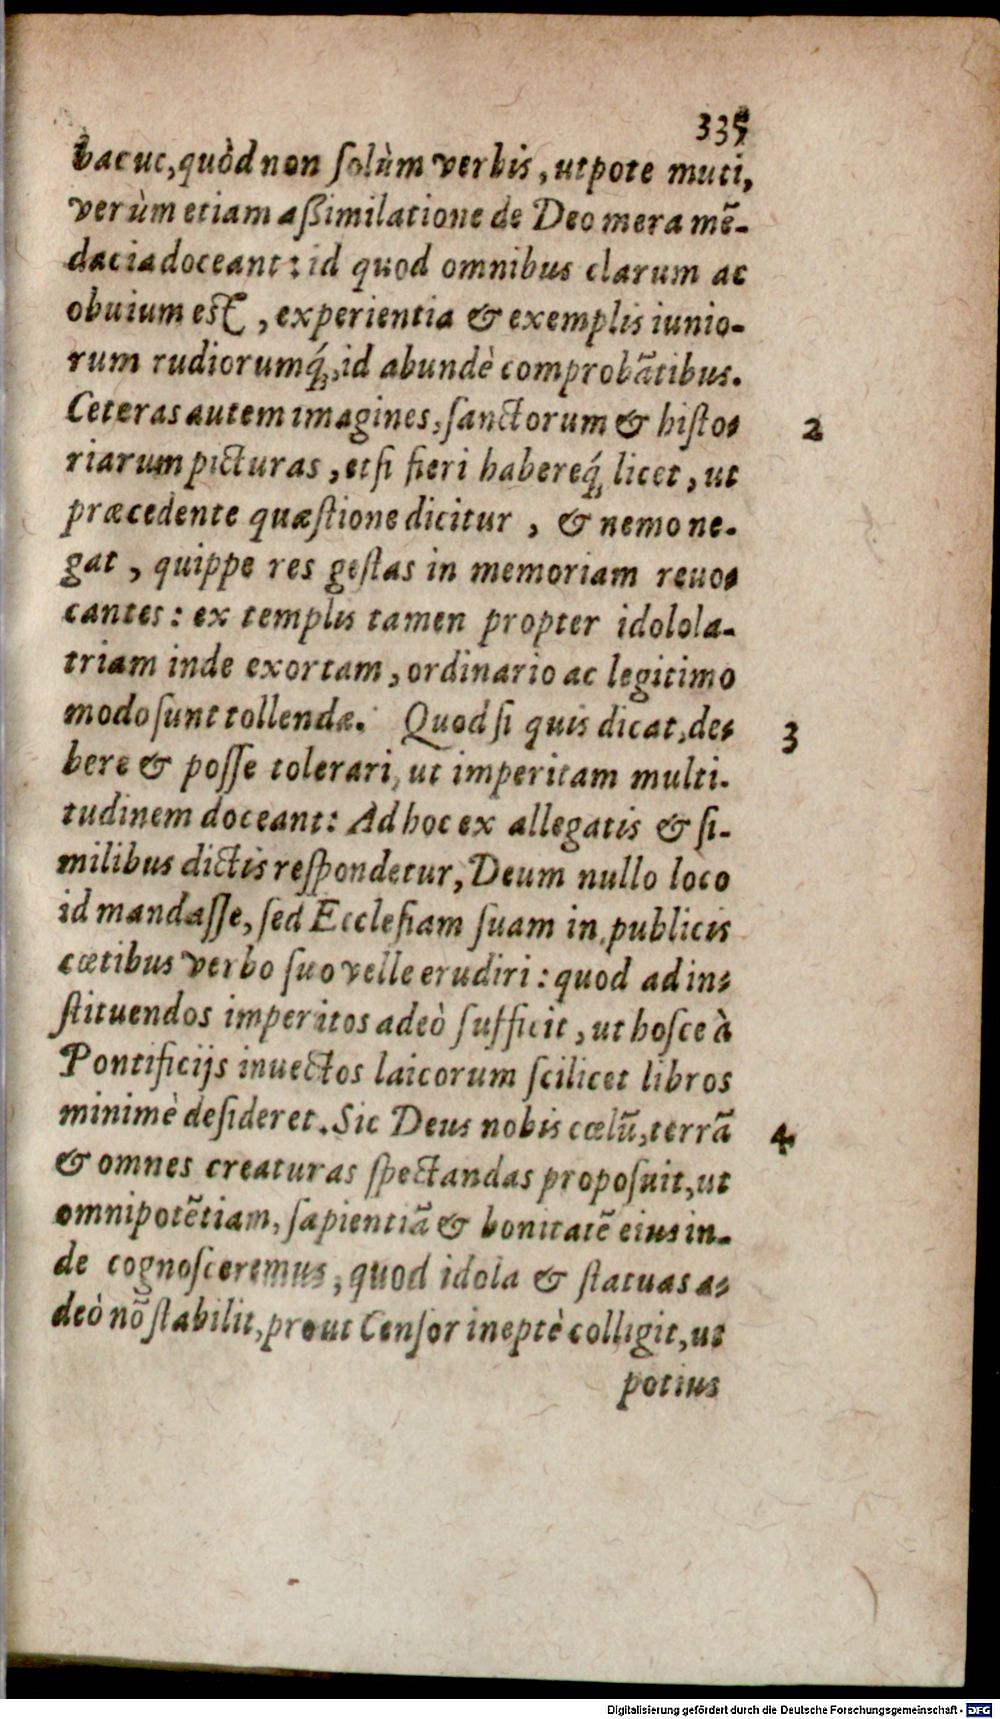 335
bacuc, quòd non ſolùm verbis, utpote muti,
verùm etiam aßimilatione de Deo mera mẽ-
dacia doceant: id quod omnibus clarum ac
obuium eſt, experientia & exemplis iunio-
rum rudiorumq́;, id abundè comprobãtibus.
Ceteras autem imagines, ſanctorum & hiſto-
2
riarum picturas, etſi fieri habereq́; licet, ut
præcedente quæſtione dicitur, & nemo ne-
gat, quippe res geſtas in memoriam reuo-
cantes: ex templis tamen propter idolola-
triam inde exortam, ordinario ac legitimo
modo ſunt tollendæ. Quod ſi quis dicat, de-
3
bere & poſſe tolerari, ut imperitam multi-
tudinem doceant: Ad hoc ex allegatis & ſi-
milibus dictis reſpondetur, Deum nullo loco
id mandaſſe, ſed Eccleſiam ſuam in publicis
cœtibus verbo ſuo velle erudiri: quod ad in-
ſtituendos imperitos adeò ſufficit, ut hoſce à
Pontificijs inuectos laicorum ſcilicet libros
minimè deſideret. Sic Deus nobis cœlũ, terrã
4
& omnes creaturas ſpectandas propoſuit, ut
omnipotẽtiam, ſapientiã & bonitatẽ eius in-
de cognoſceremus, quod idola & ſtatuas a-
deò nõ ſtabilit, prout Cenſor ineptè colligit, ut
potius
Digitalisierung gefördert durch die Deutsche Forschungsgemeinschaft - DFG